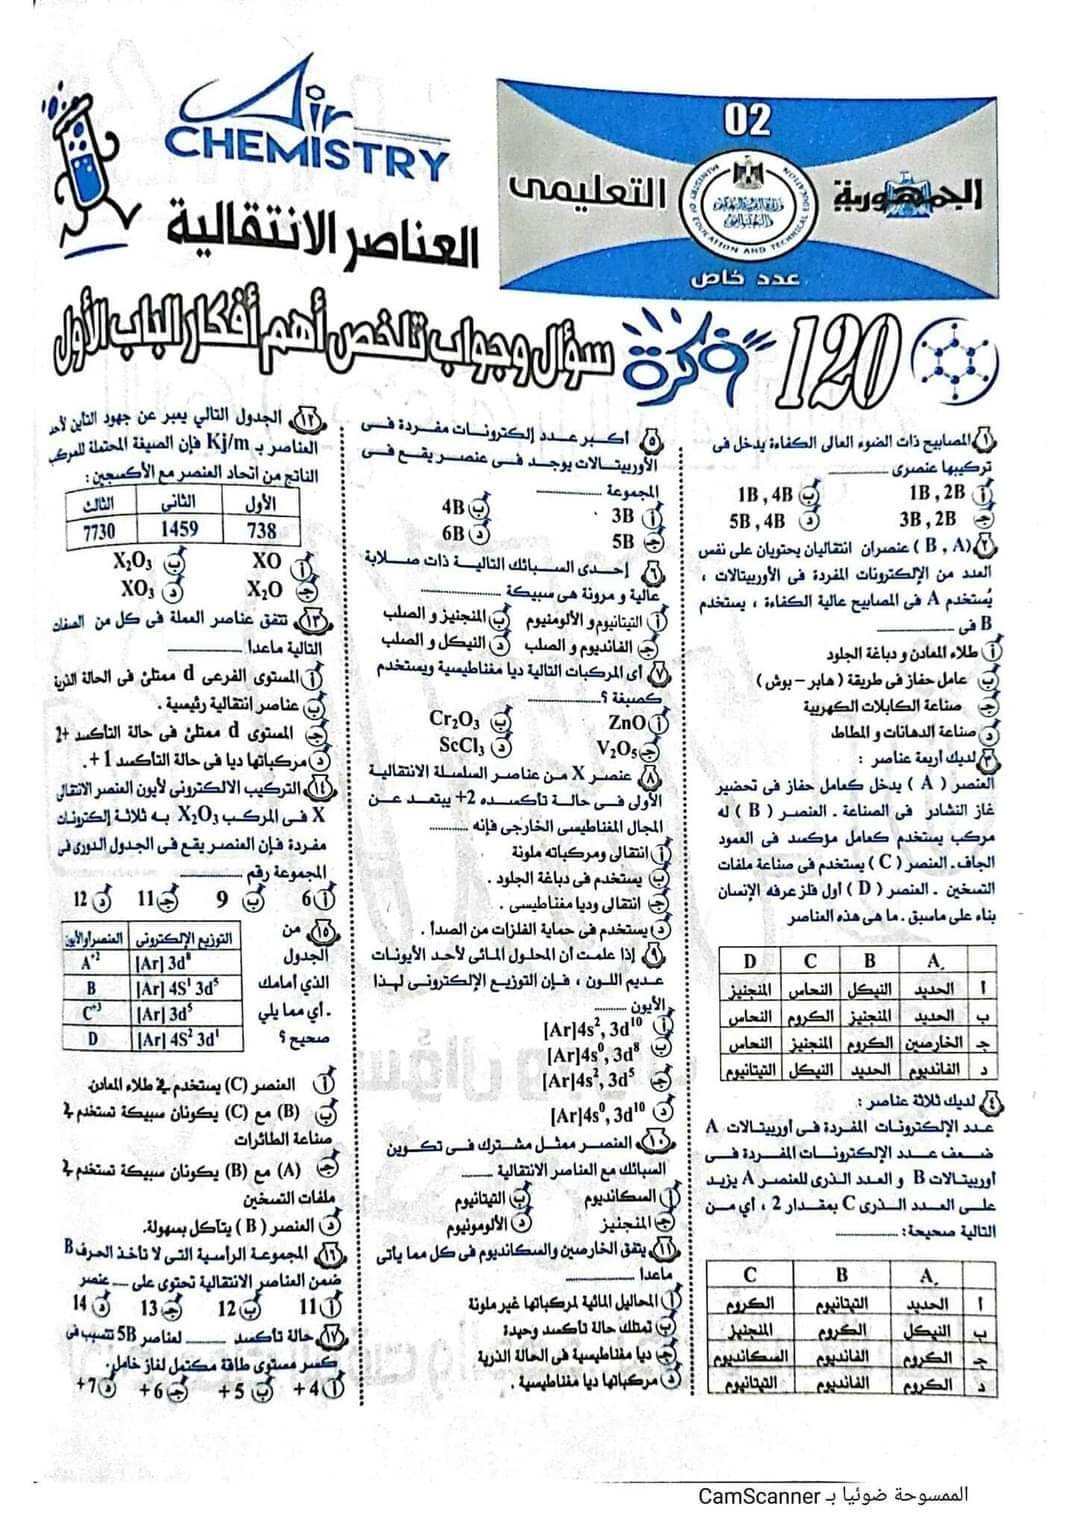 Air
CHEMISTRY
العناصر الانتقالية
02
الجمهورية
التعليمى
MINISTRY OF EDUCATION AND TECHNICAL EDUCATION
عدد خاص
120 فكرة سؤال وجواب تلخص أهم أفكار الباب الأول
١ المصابيح ذات الضوء العالى الكفاءة يدخل فى
تركيبها عنصرى
أ 1B , 2B ب 1B , 4B
ج 3B , 2B د 5B , 4B
٢ (B , A) عنصران انتقاليان يحتويان على نفس
العدد من الإلكترونات المفردة فى الأوربيتالات ،
يُستخدم A فى المصابيح عالية الكفاءة ، يستخدم
B فى
أ طلاء المعادن و دباغة الجلود
ب عامل حفاز فى طريقة ( هابر – بوش )
ج صناعة الكابلات الكهربية
د صناعة الدهانات و المطاط
٣ لديك أربعة عناصر :
العنصر ( A ) يدخل كعامل حفاز فى تحضير
غاز النشادر فى الصناعة . العنصر ( B ) له
مركب يستخدم كعامل مؤكسد فى العمود
الجاف . العنصر ( C ) يستخدم فى صناعة ملفات
التسخين . العنصر ( D ) أول فلز عرفه الإنسان
بناء على ماسبق . ما هى هذه العناصر
A B C D
أ الحديد النيكل النحاس المنجنيز
ب الحديد المنجنيز الكروم النحاس
ج الخارصين الكروم المنجنيز النحاس
د الفانديوم الحديد النيكل التيتانيوم
٤ لديك ثلاثة عناصر :
عدد الإلكترونات المفردة فى أوربيتالات A
ضعف عدد الإلكترونات المفردة فى
أوربيتالات B و العدد الذرى للعنصر A يزيد
على العدد الذرى C بمقدار 2 ، أي من
التالية صحيحة :
A B C
أ الحديد التيتانيوم الكروم
ب النيكل الكروم المنجنيز
ج الكروم الفانديوم السكانديوم
د الكروم الفانديوم التيتانيوم
٥ أكبر عدد إلكترونات مفردة فى
الأوربيتالات يوجد فى عنصر يقع فى
المجموعة
أ 3B ب 4B
ج 5B د 6B
٦ إحدى السبائك التالية ذات صلابة
عالية و مرونة هى سبيكة
أ التيتانيوم و الألومنيوم ب المنجنيز و الصلب
ج الفانديوم و الصلب د النيكل و الصلب
٧ أى المركبات التالية ديا مغناطيسية ويستخدم
كصبغة ؟
أ ZnO ب Cr₂O₃
ج V₂O₅ د ScCl₃
٨ عنصر X من عناصر السلسلة الانتقالية
الأولى فى حالة تأكسده 2+ يبتعد عن
المجال المغناطيسى الخارجى فإنه
أ انتقالى ومركباته ملونة
ب يستخدم فى دباغة الجلود .
ج انتقالى وديا مغناطيسى .
د يستخدم فى حماية الفلزات من الصدأ .
٩ إذا علمت أن المحلول المائى لأحد الأيونات
عديم اللون ، فإن التوزيع الإلكترونى لهذا
الأيون
أ [Ar]4s², 3d¹⁰
ب [Ar]4s⁰, 3d⁸
ج [Ar]4s², 3d⁵
د [Ar]4s⁰, 3d¹⁰
١٠ العنصر ممثل مشترك فى تكوين
السبائك مع العناصر الانتقالية
أ السكانديوم ب التيتانيوم
ج المنجنيز د الألومونيوم
١١ يتفق الخارصين والسكانديوم فى كل مما يأتى
ماعدا
أ المحاليل المائية لمركباتها غير ملونة
ب تمتلك حالة تأكسد وحيدة
ج ديا مغناطيسية فى الحالة الذرية
د مركباتها ديا مغناطيسية .
١٢ الجدول التالي يعبر عن جهود التأين لأحد
العناصر بـ Kj/m فإن الصيغة المحتملة للمركب
الناتج من اتحاد العنصر مع الأكسجين :
الأول الثانى الثالث
738 1459 7730
أ XO ب X₂O₃
ج X₂O د XO₃
١٣ تتفق عناصر العملة فى كل من الصفات
التالية ماعدا
أ المستوى الفرعى d ممتلئ فى الحالة الذرية
ب عناصر انتقالية رئيسية .
ج المستوى d ممتلئ فى حالة التأكسد 2+
د مركباتها ديا فى حالة التأكسد 1+ .
١٤ التركيب الالكترونى لأيون العنصر الانتقالى
X فى المركب X₂O₃ به ثلاثة إلكترونات
مفردة فإن العنصر يقع فى الجدول الدورى فى
المجموعة رقم
أ 6 ب 9 ج 11 د 12
١٥ من
الجدول
الذي أمامك
. أي مما يلي
صحيح ؟
العنصر أو الأيون التوزيع الإلكترونى
A⁺² [Ar] 3d⁸
B [Ar] 4S¹ 3d⁵
C⁺³ [Ar] 3d⁵
D [Ar] 4S² 3d¹
أ العنصر (C) يستخدم في طلاء المعادن
ب (B) مع (C) يكونان سبيكة تستخدم في
صناعة الطائرات
ج (A) مع (B) يكونان سبيكة تستخدم في
ملفات التسخين
د العنصر ( B ) يتآكل بسهولة.
١٦ المجموعة الرأسية التى لا تأخذ الحرف B
ضمن العناصر الانتقالية تحتوى على عنصر
أ 11 ب 12 ج 13 د 14
١٧ حالة تأكسد لعناصر 5B تتسبب فى
كسر مستوى طاقة مكتمل لغاز خامل.
أ 4 + ب 5 + ج 6 + د 7 +
الممسوحة ضوئيا بـ CamScanner